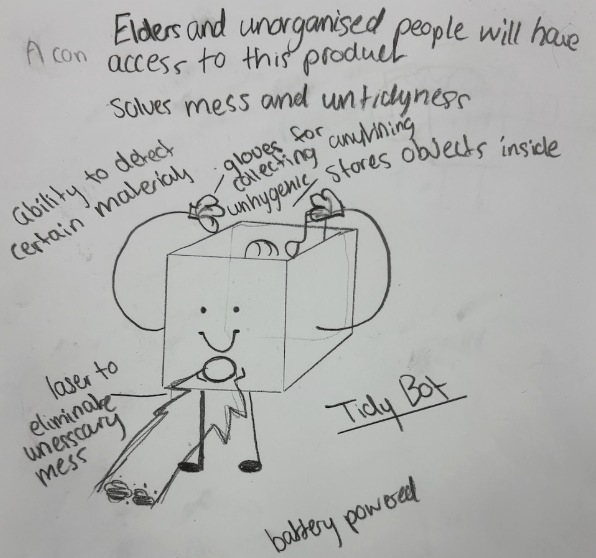 Elders and unorganised people will have
A can access to this product
solves mess and untidyness
ability to detect
certain materials
gloves for
collecting anything
unhygenic
stores objects inside
laser to
eliminate
unesscary
mess
Tidy Bot
battery powered